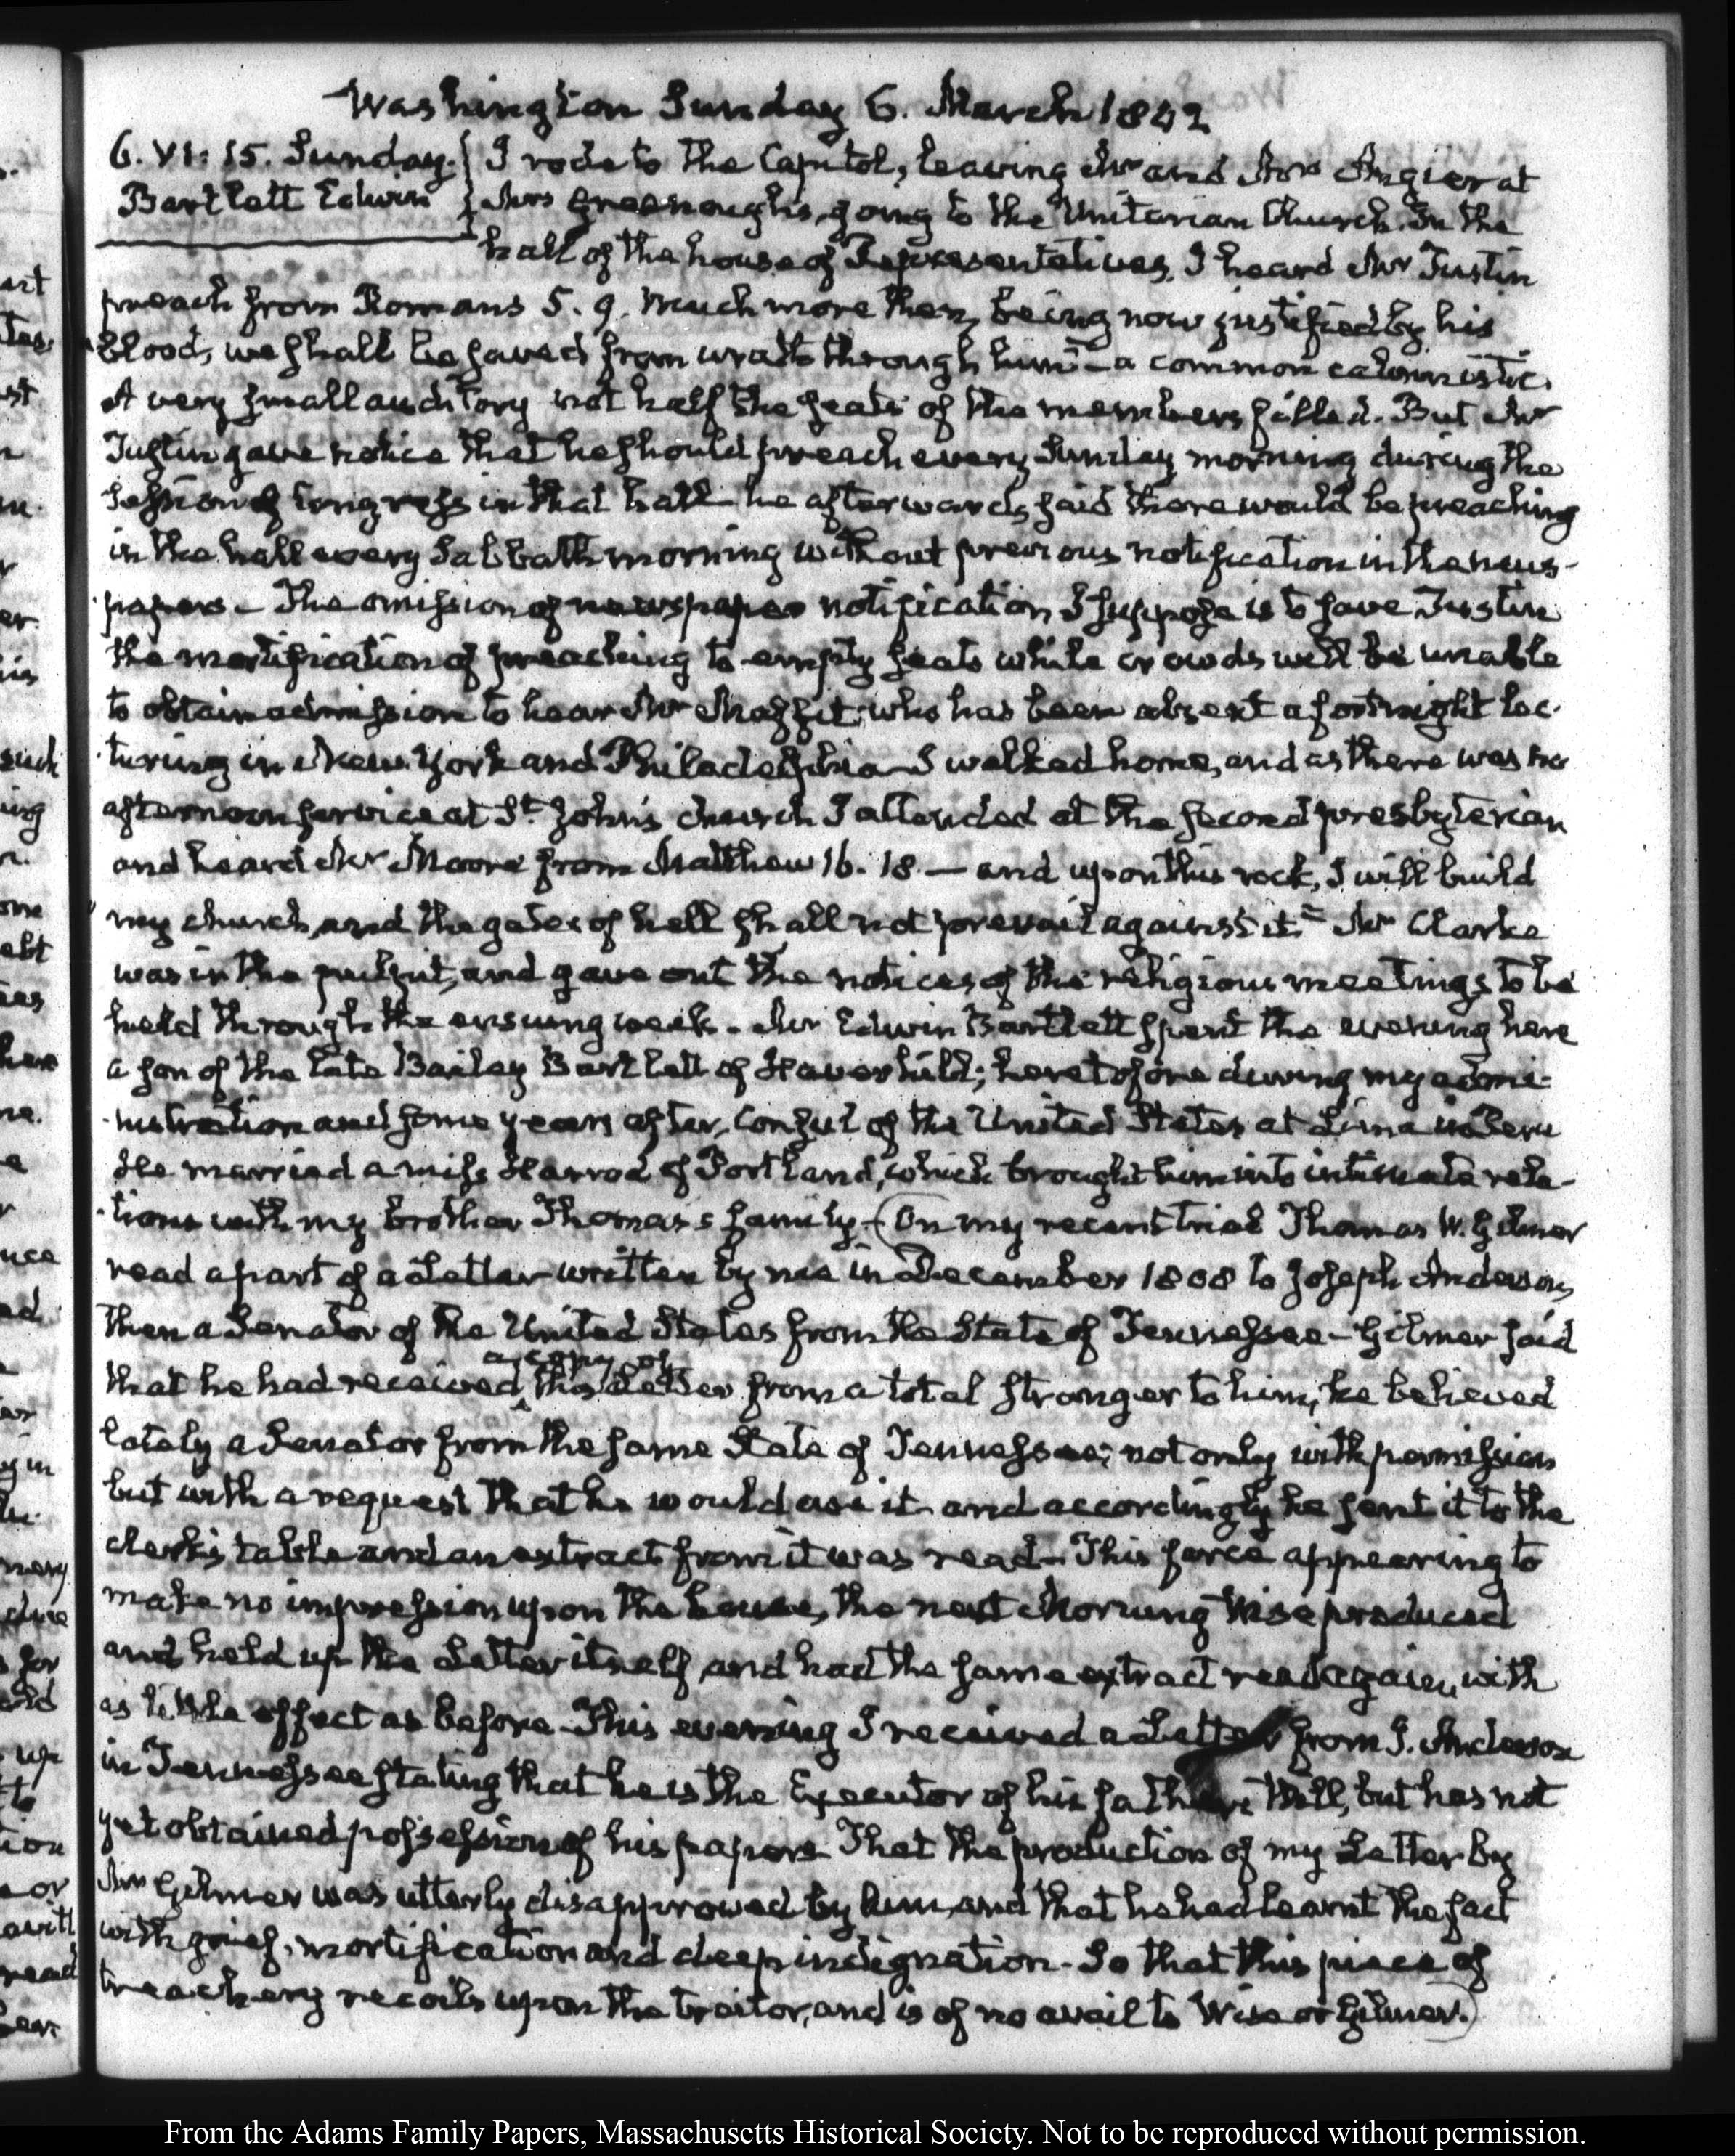 Washington Sunday 6. March 1842
6. VI: 15. Sunday.
Bartlett Edwin
I rode to the Capitol, leaving Mr and Mrs Angier at
Mrs Greenough's, going to the Unitarian Church. In the
hall of the house of Representatives, I heard Mr Tustin
preach from Romans 5. 9. Much more then, being now justified by his
blood, we shall be saved from wrath through him — a common calvinistic.
A very small auditory not half the seats of the members filled. But Mr
Tustin gave notice that he should preach every Sunday morning during the
Session of Congress in that hall he afterwards said there would be preaching
in the hall every Sabbath morning without previous notification in the news-
papers — The omission of newspaper notification I suppose is to save Tustin
the mortification of preaching to empty seats while crowds will be unable
to obtain admission to hear Mr Maffit, who has been absent a fortnight lec-
turing in New York and Philadelphia I walked home, and as there was no
afternoon service at St. John's church I attended at the second presbyterian
and heard Mr Moore from Matthew 16. 18 — and upon this rock, I will build
my church, and the gates of hell shall not prevail against it = Mr Clarke
was in the pulpit, and gave out the notices of the religious meetings to be
held through the ensuing week. Mr Edwin Bartlett spent the evening here
a son of the late Bailey Bartlett of Haverhill; heretofore during my admi-
nistration and some years after, Consul of the United States at Lima in Peru
He married a miss Harrod of Portland, which brought him into intimate rela-
tions with my brother Thomas's family — (On my recent trial Thomas W. Gilmer
read a part of a Letter written by me in December 1808 to Joseph Anderson,
then a Senator of the United States from the State of Tennessee — Gilmer said
that he had received a copy of this Letter from a total stranger to him, he believed
lately a Senator from the same State of Tennessee; not only with permission
but with a request that he would use it and accordingly he sent it to the
clerk's table and an extract from it was read — This farce appearing to
make no impression upon the house, the next Morning Wise produced
and held up the Letter itself, and had the same extract read again, with
as little effect as before. This evening I received a Letter from J. Anderson
in Tennessee stating that he is the Executor of his father's Will, but has not
yet obtained possession of his papers. That the production of my Letter by
Mr Gilmer was utterly disapproved by him, and that he had learnt the fact
with grief, mortification and deep indignation. So that this piece of
treachery recoils upon the traitor, and is of no avail to Wise or Gilmer.)
From the Adams Family Papers, Massachusetts Historical Society. Not to be reproduced without permission.